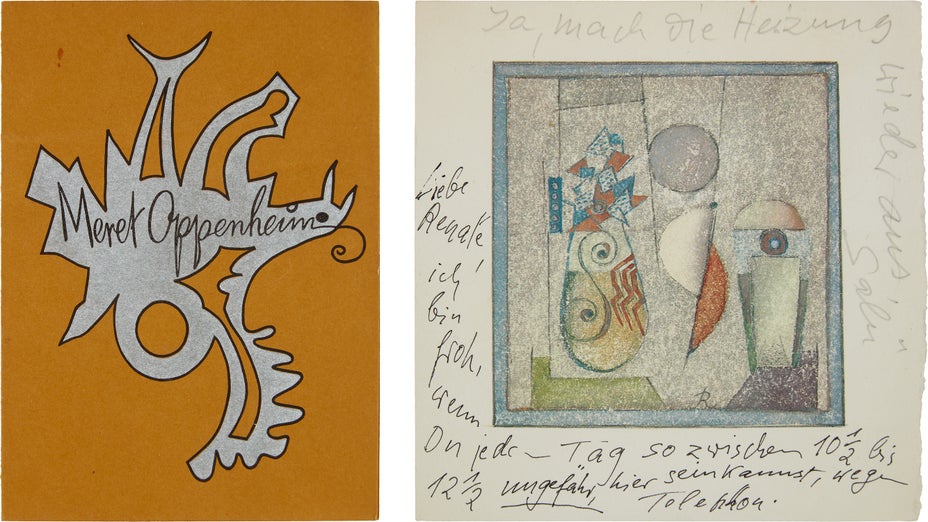 Meret Oppenheim
Ja, mach die Heizung
wieder aus"
Liebe
Renate
ich
bin
froh,
wenn
Du jede Tag so zwischen 10 1/2 bis
12 1/2 ungefähr, hier sein kannst, wegen
Telephon.
R